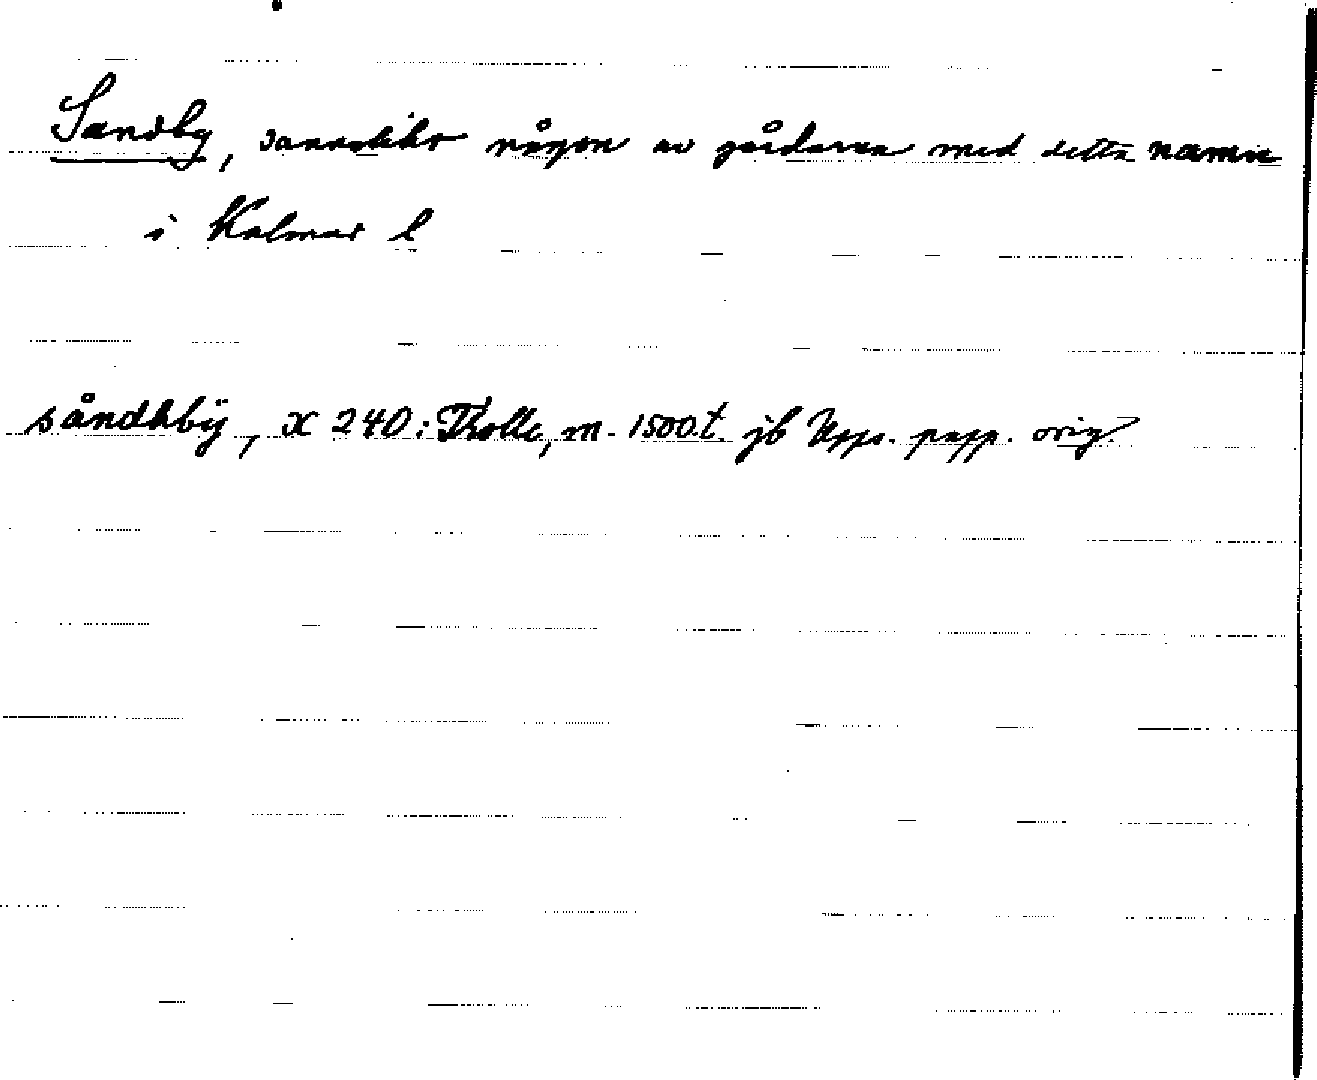 Sandby, sannolikt någon av gårdarna med detta namn
i Kalmar l
såndhbÿ, X 240: Trolle, m. 1500t. jb Upps. papp. orig.